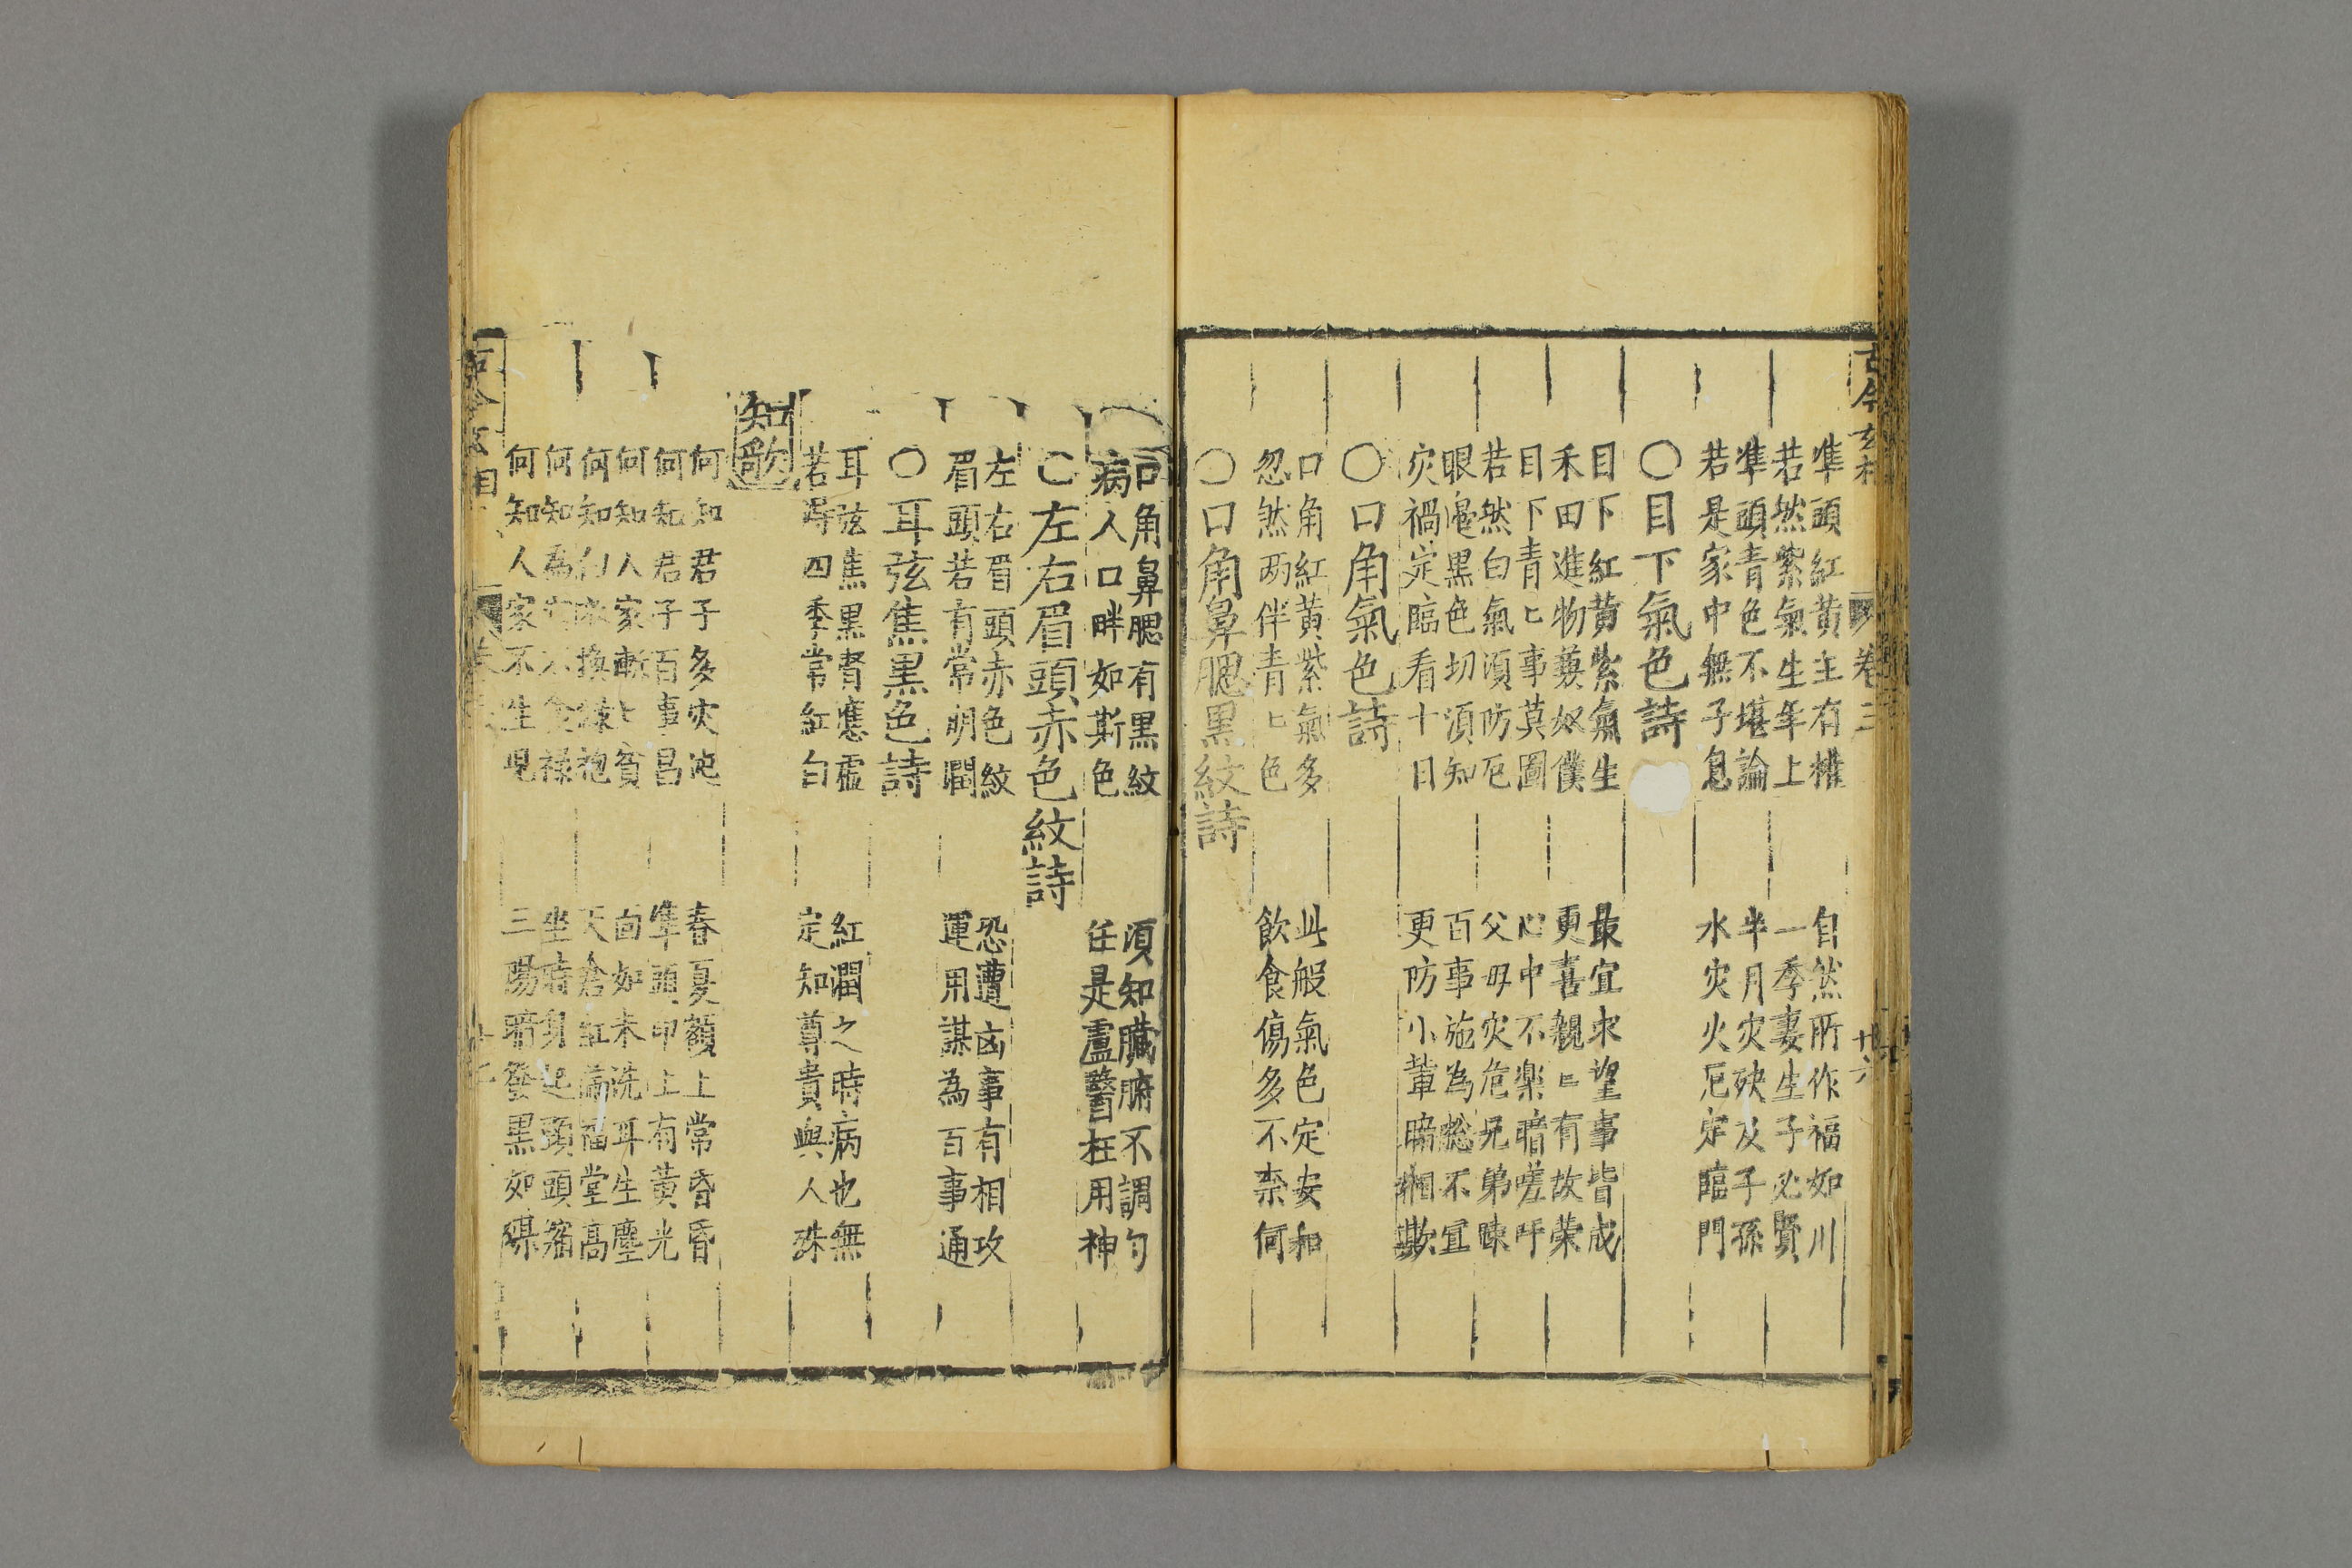 古今玄相 卷三 廿六
準頭紅黄主有權 自然所作福如川
若然紫氣生年上 一季妻生子必賢
準頭青色不堪論 半月灾殃及子孫
若是家中無子息 水灾火厄定臨門
〇目下氣色詩
目下紅黄紫氣生 最宜求望事皆成
禾田進物蓺奴僕 更喜親〻有故榮
目下青〻事莫圖 心中不樂暗嗟吁
若然白氣湏防厄 父母灾危兄弟
眼黑色切湏知 百事施為總不宜
灾禍定臨看十日 更防小輩暗相欺
〇口角氣色詩
口角紅黄紫氣多 此般氣色定安和
忽然两伴青〻色 飲食傷多不柰何
〇口角鼻腮黑紋詩
口角鼻腮有黑紋 湏知臟腑不調匀
病人口畔如斯色 任是盧醫枉用神
〇左右眉頭赤色紋詩
左右眉頭赤色紋 恐遭凶事有相攻
眉頭若有常明潤 運用謀為百事通
〇耳弦焦黑色詩
耳弦焦黑腎應虛 紅潤之時病也無
若得四季常紅白 定知尊貴與人殊
知歌
何知君子多灾迍 春夏額上常昏昏
何知君子百事昌 準頭印上有黄光
何知人家漸〻貧 面如未洗耳生塵
何知白衣換綠袍 天倉紅滿福堂高
何知為食祿 坐時身起頭頭縮
何知人家不生兒 三陽暗發黑如煤
古今玄相